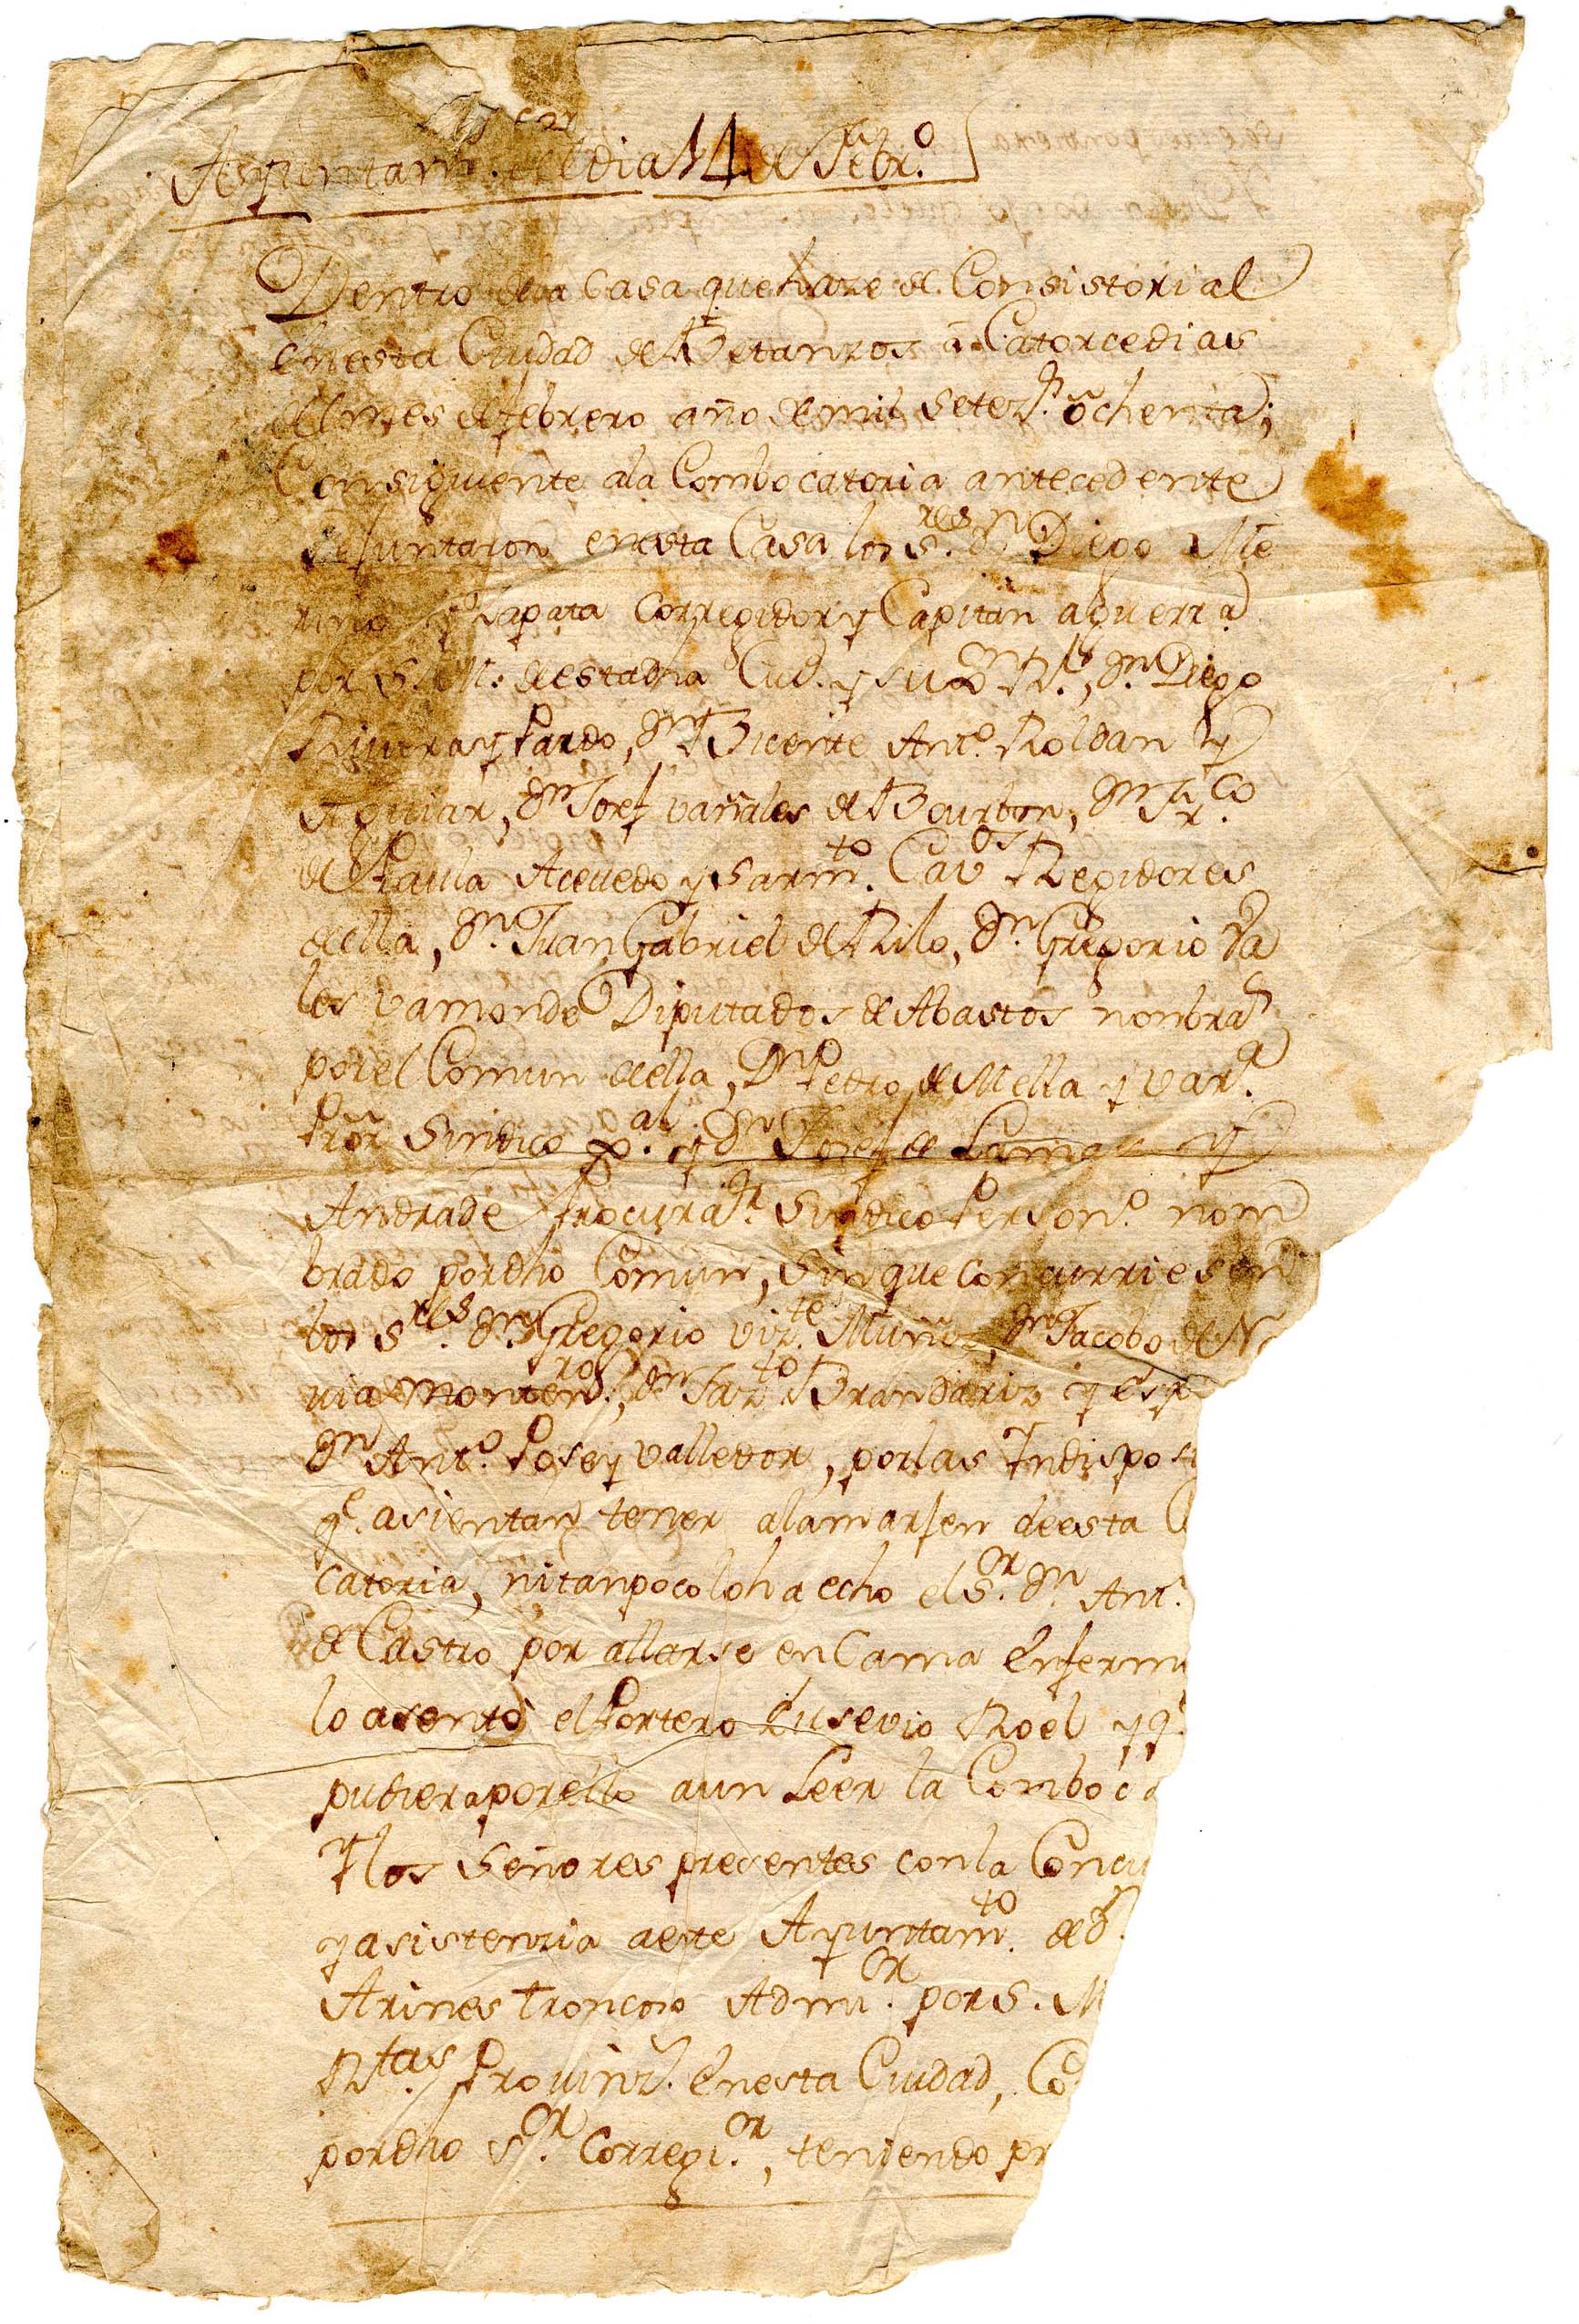 Ayuntam.to del dia 14 de Febr.o
Dentro de la Casa que haze de Consistorial
en esta Ciudad de Betanzos a Catorce dias
del mes de febrero año de mil setez.s ochenta;
Consiguiente ala Combocatoria antecedente
se Juntaron en esta Casa los S.res Dn Diego Me
rino y Zapata Corregidor y Capitan aguerra
por S. M. de esta dha Ciud. y su , Dn Diego
Riveray Pardo, Dn Bicente Ant.o Roldan y
Aguiar, Dn Josef vañales de Bourbon, Dn Fr.co
de Paula Acevedo y Sarm.to Cav.os Regidores
de ella, Dn Juan Gabriel de Rilo, Dn Gregorio Va
les vamonde Diputados de Abastos nonbra.s
por el Comun de ella, Dn Pedro de Mella y var.a
Prõr Sindico g.al y Dn Josef de Lamas y
Andrade Procura.r Sindico Person.o nom
brado por dho Comun, sin que concurriesen
los S.res Dn Gregorio viz.te Muñoz, Dn Jacobo de N
via Monten.ro, Dn Jaz.to Brandariz y Esp
Dn Ant.o Pose y valledor, por las Indispos
q.e asientan tener ala marjen de esta C
catoria, ni tanpoco lo ha echo el S.or Dn Ant.
de Castro por allarse en Cama Enferm
lo asento el Portero Eusevio Roel y q.e
pudiera por ello aun Leer la Comboca
Y los Señores presentes con la Concu
y asistenzia a este Ayuntam.to de d.
Arines troncoso Admi.or por S. M
R.tas Provinz. En esta Ciudad, Co
por dho S.or Corregi.or, teniendo pr